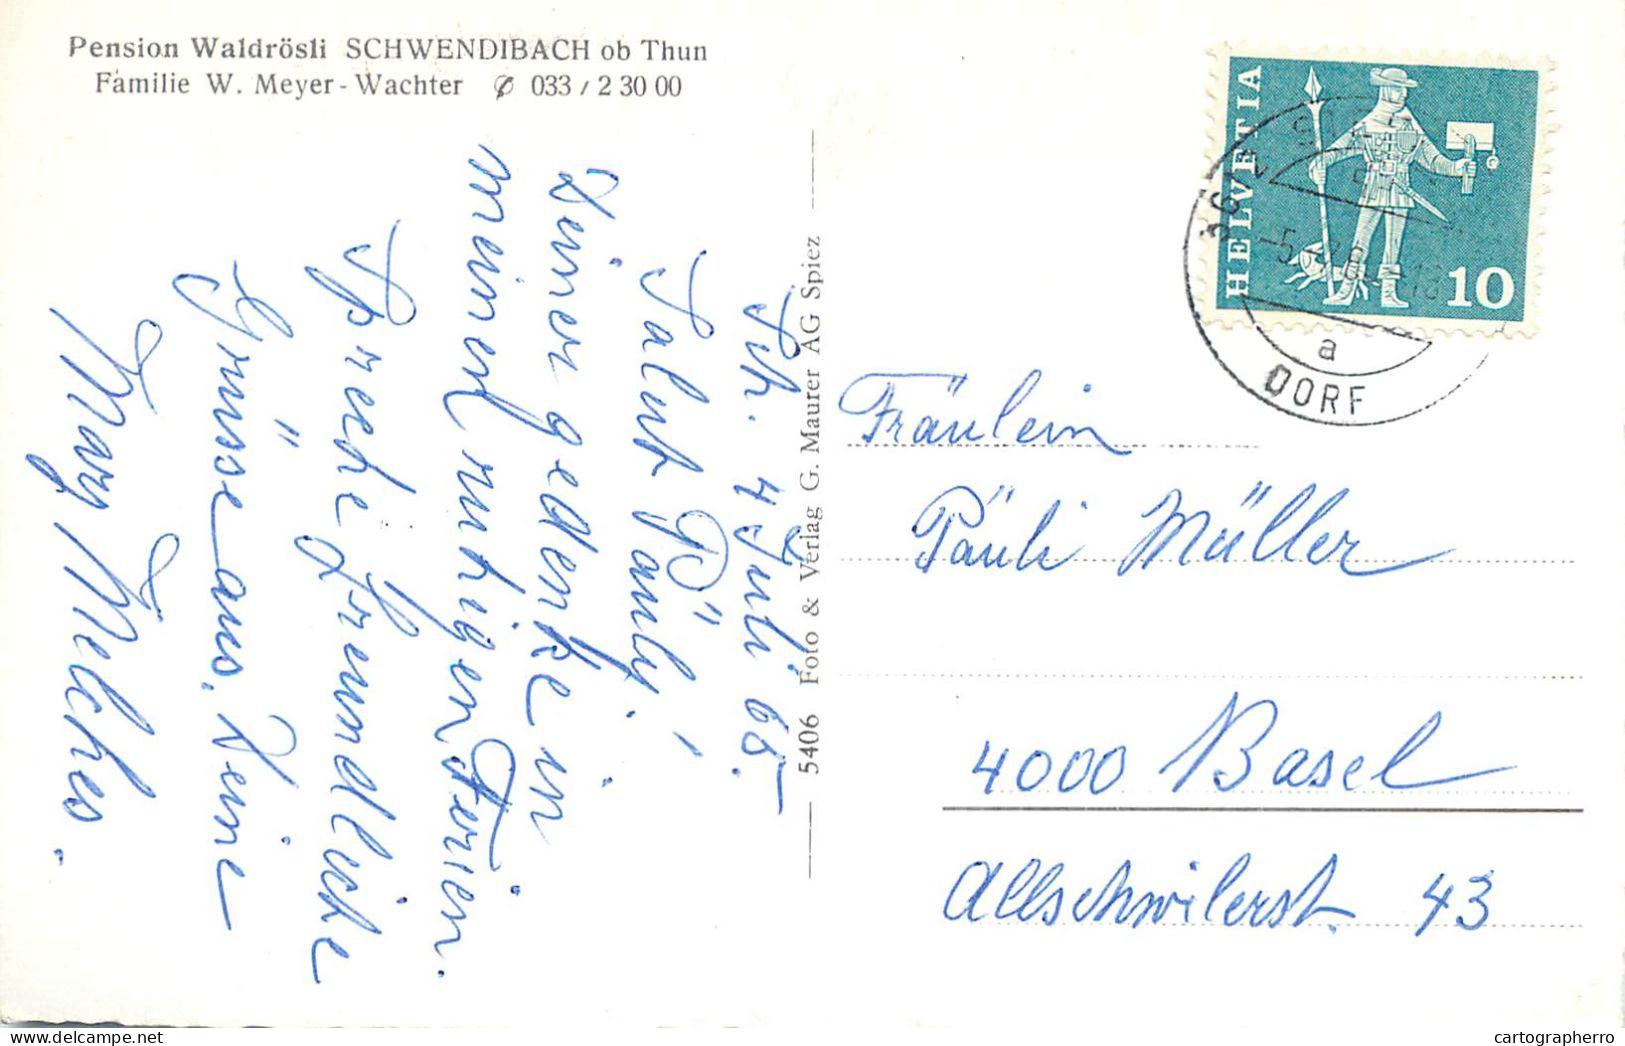 Pension Waldrösli SCHWENDIBACH ob Thun
Familie W. Meyer-Wachter ✆ 033 / 2 30 00
Sch. 4 Juli 65.
Salut Päuly!
Deiner gedenke in
meinen ruhigen Ferien.
Sende freundliche
Grüsse aus, Deine
Mary Melches.
5406 Foto & Verlag G. Maurer AG Spiez
HELVETIA
10
3612
-5.-7.65-18
a
DORF
Fräulein
Päuli Müller
4000 Basel
Allschwilerst. 43
cartographerro